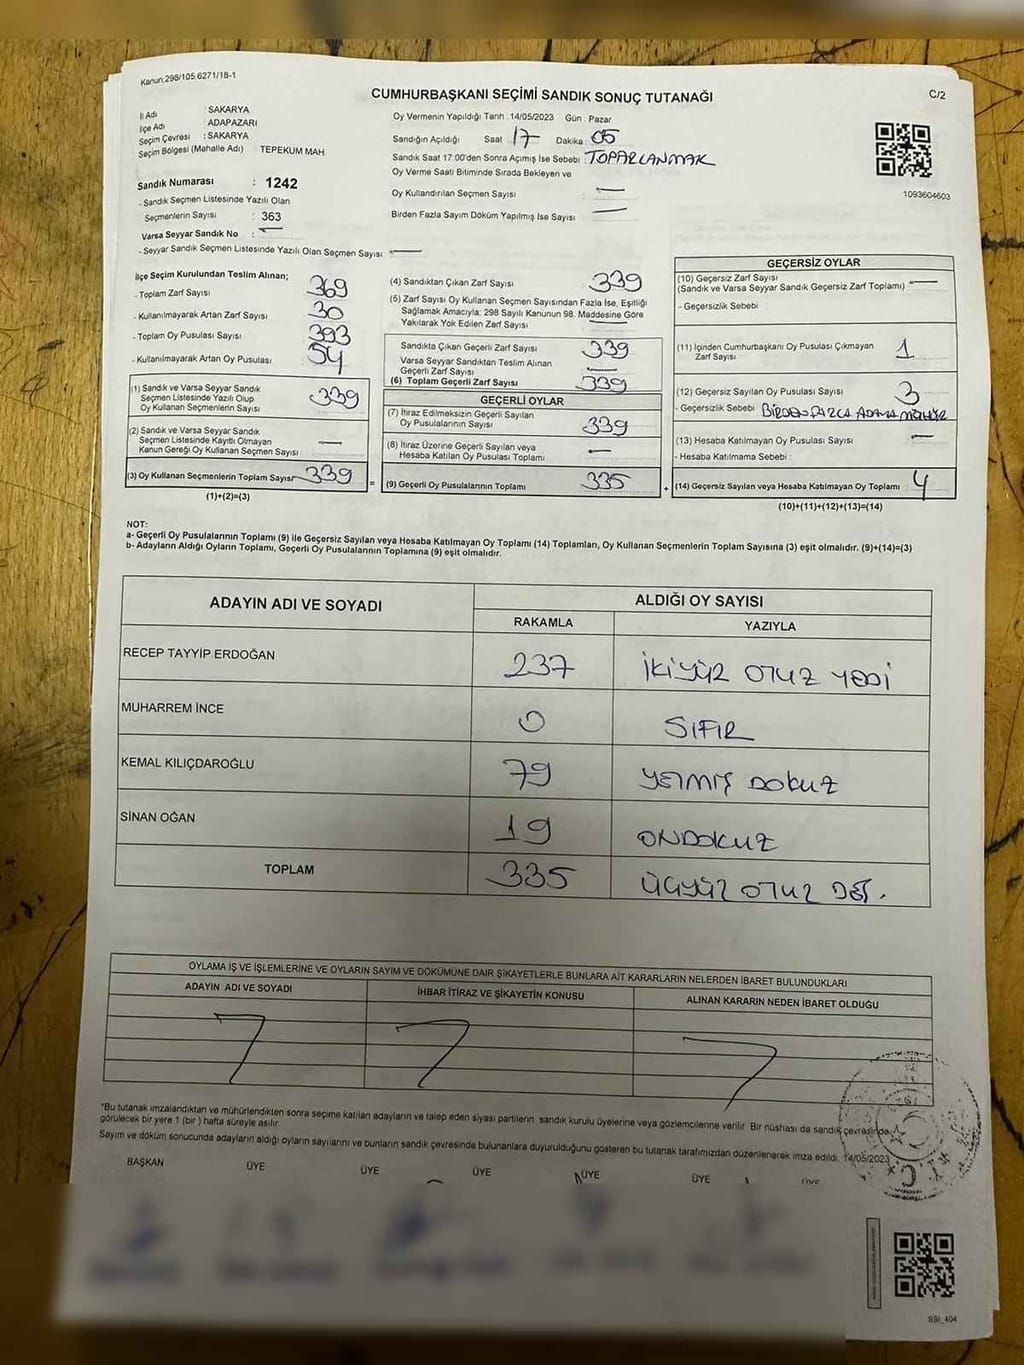 Kanun:298/105.6271/18-1
C/2
CUMHURBAŞKANI SEÇİMİ SANDIK SONUÇ TUTANAĞI
İl Adı : SAKARYA
İlçe Adı : ADAPAZARI
Seçim Çevresi : SAKARYA
Seçim Bölgesi (Mahalle Adı) TEPEKUM MAH.
Sandık Numarası : 1242
- Sandık Seçmen Listesinde Yazılı Olan
Seçmenlerin Sayısı : 363
Varsa Seyyar Sandık No : —
- Seyyar Sandık Seçmen Listesinde Yazılı Olan Seçmen Sayısı : —
Oy Vermenin Yapıldığı Tarih :14/05/2023 Gün : Pazar
Sandığın Açıldığı Saat 17 Dakika : 05
Sandık Saat 17:00'den Sonra Açımış İse Sebebi : TOPARLANMAK
Oy Verme Saati Bitiminde Sırada Bekleyen ve
Oy Kullandırılan Seçmen Sayısı : —
Birden Fazla Sayım Döküm Yapılmış İse Sayısı : —
1093604603
İlçe Seçim Kurulundan Teslim Alınan;
- Toplam Zarf Sayısı 369
- Kullanılmayarak Artan Zarf Sayısı 30
- Toplam Oy Pusulası Sayısı 393
- Kullanılmayarak Artan Oy Pusulası 54
(1) Sandık ve Varsa Seyyar Sandık
Seçmen Listesinde Yazılı Olup
Oy Kullanan Seçmenlerin Sayısı 339
(2) Sandık ve Varsa Seyyar Sandık
Seçmen Listesinde Kayıtlı Olmayan
Kanun Gereği Oy Kullanan Seçmen Sayısı —
(3) Oy Kullanan Seçmenlerin Toplam Sayısı 339
(1)+(2)=(3)
(4) Sandıktan Çıkan Zarf Sayısı : 339
(5) Zarf Sayısı Oy Kullanan Seçmen Sayısından Fazla İse, Eşitliği
Sağlamak Amacıyla; 298 Sayılı Kanunun 98. Maddesine Göre
Yakılarak Yok Edilen Zarf Sayısı —
Sandıkta Çıkan Geçerli Zarf Sayısı 339
Varsa Seyyar Sandıktan Teslim Alınan
Geçerli Zarf Sayısı —
(6) Toplam Geçerli Zarf Sayısı 339
GEÇERLİ OYLAR
(7) İtiraz Edilmeksizin Geçerli Sayılan
Oy Pusulalarının Sayısı 339
(8) İtiraz Üzerine Geçerli Sayılan veya
Hesaba Katılan Oy Pusulası Toplamı —
(9) Geçerli Oy Pusulalarının Toplamı 335
GEÇERSİZ OYLAR
(10) Geçersiz Zarf Sayısı
(Sandık ve Varsa Seyyar Sandık Geçersiz Zarf Toplamı) : —
- Geçersizlik Sebebi
(11) İçinden Cumhurbaşkanı Oy Pusulası Çıkmayan
Zarf Sayısı 1
(12) Geçersiz Sayılan Oy Pusulası Sayısı 3
- Geçersizlik Sebebi : BİRDEN FAZLA ADAMA MÜHÜR
(13) Hesaba Katılmayan Oy Pusulası Sayısı —
- Hesaba Katılmama Sebebi :
(14) Geçersiz Sayılan veya Hesaba Katılmayan Oy Toplamı 4
(10)+(11)+(12)+(13)=(14)
NOT:
a- Geçerli Oy Pusulalarının Toplamı (9) ile Geçersiz Sayılan veya Hesaba Katılmayan Oy Toplamı (14) Toplamları, Oy Kullanan Seçmenlerin Toplam Sayısına (3) eşit olmalıdır. (9)+(14)=(3)
b- Adayların Aldığı Oyların Toplamı, Geçerli Oy Pusulalarının Toplamına (9) eşit olmalıdır.
ADAYIN ADI VE SOYADI ALDIĞI OY SAYISI
RAKAMLA YAZIYLA
RECEP TAYYİP ERDOĞAN 237 İKİYÜZ OTUZ YEDİ
MUHARREM İNCE 0 SIFIR
KEMAL KILIÇDAROĞLU 79 YETMİŞ DOKUZ
SİNAN OĞAN 19 ONDOKUZ
TOPLAM 335 ÜÇYÜZ OTUZ BEŞ.
OYLAMA İŞ VE İŞLEMLERİNE VE OYLARIN SAYIM VE DÖKÜMÜNE DAİR ŞİKAYETLERLE BUNLARA AİT KARARLARIN NELERDEN İBARET BULUNDUKLARI
ADAYIN ADI VE SOYADI İHBAR İTİRAZ VE ŞİKAYETİN KONUSU ALINAN KARARIN NEDEN İBARET OLDUĞU
*Bu tutanak imzalandıktan ve mühürlendikten sonra seçime katılan adayların ve talep eden siyasi partilerin sandık kurulu üyelerine veya gözlemcilerine verilir. Bir nüshası da sandık çevresinde
görülecek bir yere 1 (bir ) hafta süreyle asılır.
Sayım ve döküm sonucunda adayların aldığı oyların sayılarını ve bunların sandık çevresinde bulunanlara duyurulduğunu gösteren bu tutanak tarafımızdan düzenlenerek imza edildi. 14/05/2023
BAŞKAN ÜYE ÜYE ÜYE ÜYE ÜYE ÜYE
T.C.
SSI_404